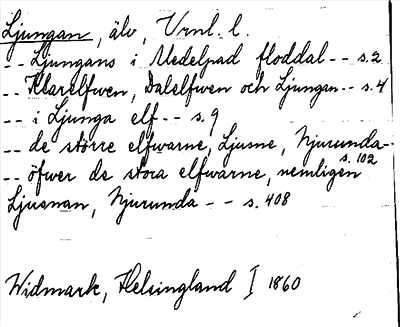 Ljungan, älv, Vrnl. l.
-- Ljungans i Medelpad floddal -- s. 2
-- Klarelfwen, Dalelfwen och Ljungan -- s. 4
-- i Ljunga elf -- s. 9
-- de större elfwarne, Ljusne, Njurunda --
s. 102
-- öfwer de stora elfwarne, nemligen
Ljusnan, Njurunda -- s. 408
Widmark, Helsingland I 1860